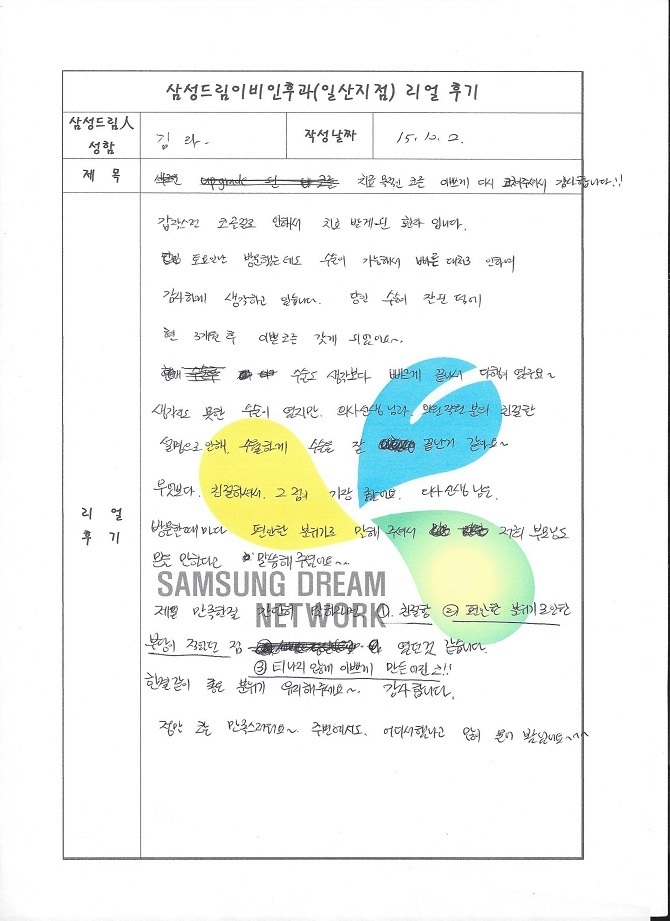 삼성드림이비인후과(일산지점) 리얼 후기
삼성드림人
성함
김 라.
작성날짜
15. 10. 2.
제 목
upgrade 된 코 치료 목적인 코를 이쁘게 다시 고쳐주셔서 감사합니다.!!
리 얼
후 기
갑작스런 인해서 치료 받게된 환자 입니다.
토요일날 방문했는데도 수술이 가능해서 빠른 인하여
감사하게 생각하고 있습니다. 당일 수술이 잘된 덕에
현 3개월 후 이쁜코를 갖게 되었어요~.
수술도 생각보다 빠르게 끝나서 다행이 였구요~
생각지도 못한 수술이 였지만, 의사선생님과, 분의 친절한
설명으로 인해, 수월하게 수술을 잘 끝난거 같아요~
무엇보다, 친절하셔서, 그 점이 가장 좋았어요. 의사선생님은,
방문할때마다 편안한 분위기로 인해 주셔서 저희 부모님도
말씀해 주셨어요~~
SAMSUNG DREAM
NETWORK
제일 만족한걸 간단히 말하자면 ①. 친절함 ② 편안한 분위기로인한
부담이 적었던 점 였던것 같습니다.
③ 티나지 않게 이쁘게 만들어진 코!!
한결같이 좋은 분위기 유지해주세요~. 감사합니다.
정말 코를 만족스러워요~ 주변에서도, 어디서했냐고 많이 물어 봐요~~